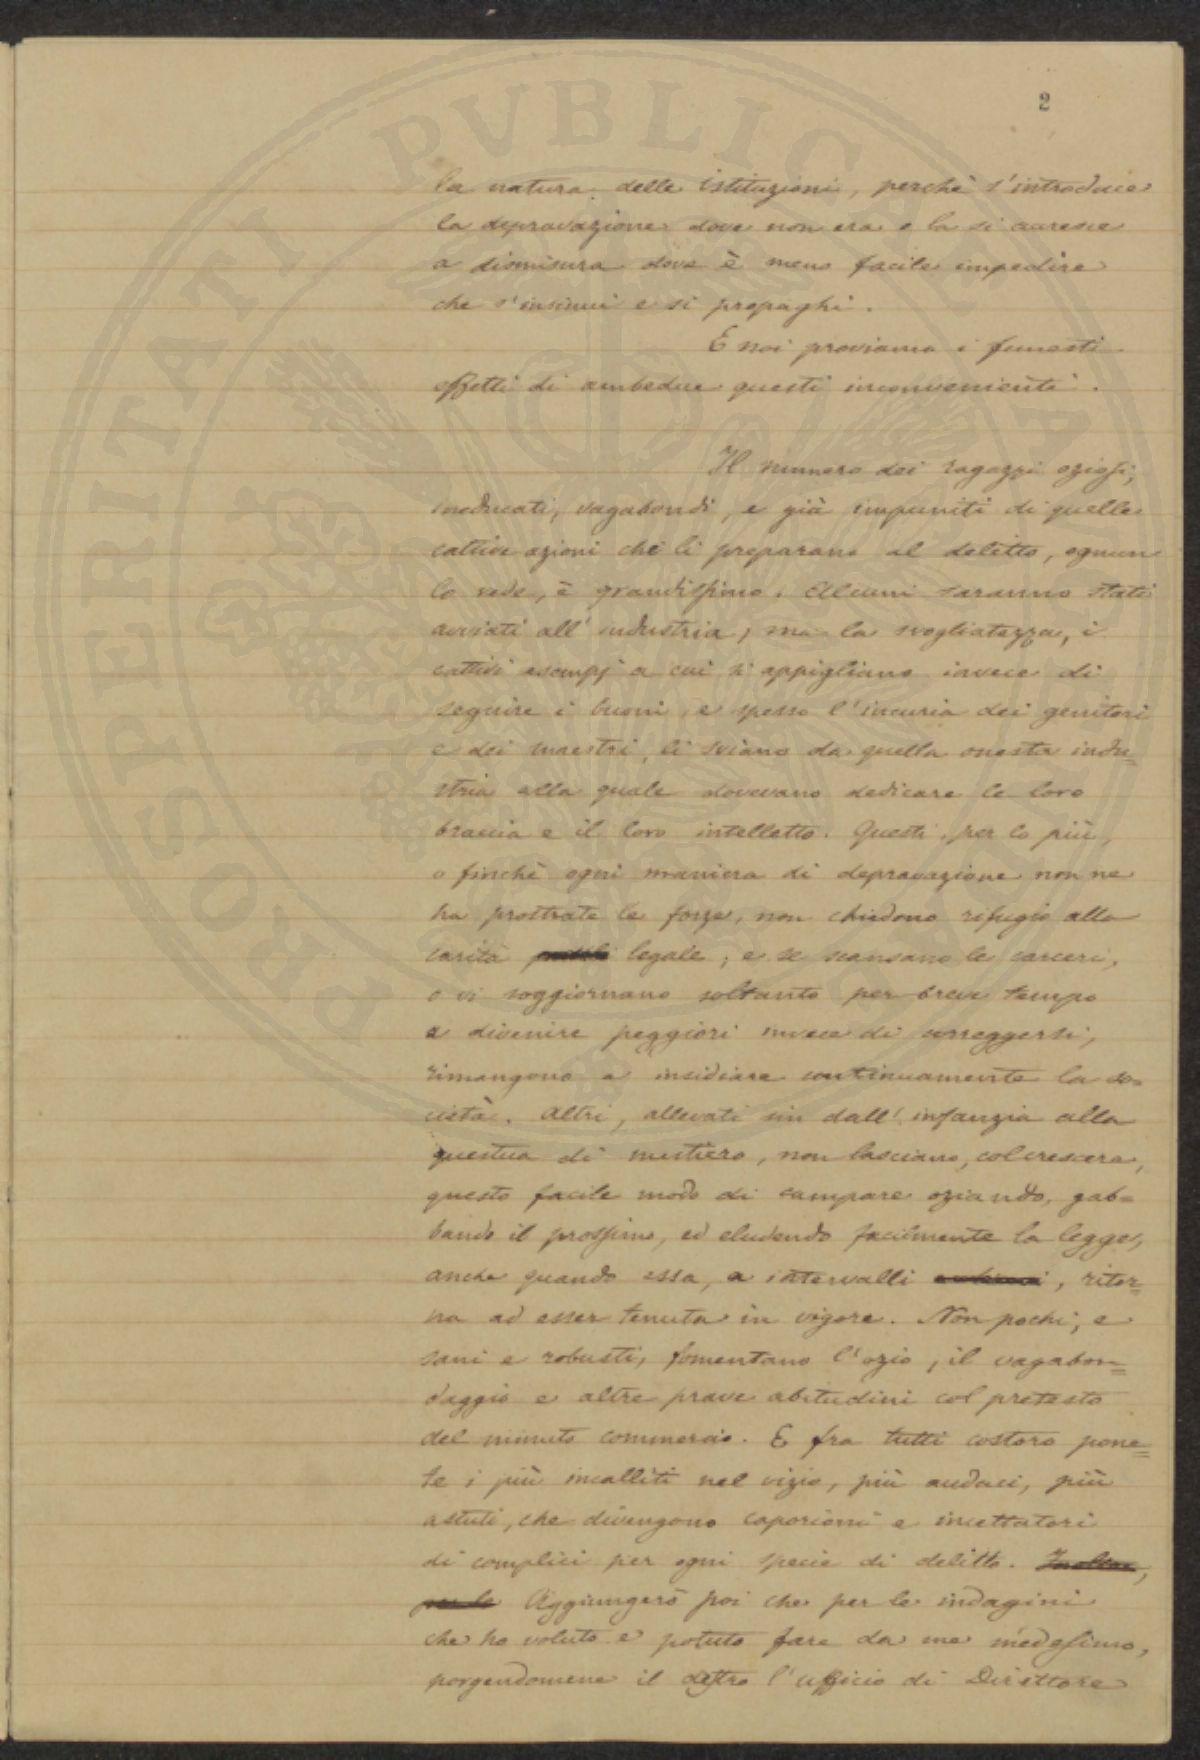 2
la natura delle istituzioni, perchè s'introduce
la depravazione dove non era e la si accresce
a dismisura dove è meno facile impedire
che s'insinui e si propaghi.
E noi proviamo i funesti
effetti di ambedue questi inconvenienti.
Il numero dei ragazzi oziosi,
ineducati, vagabondi, e già impuniti di quelle
cattive azioni che li preparano al delitto, ognun
lo vede, è grandissimo. Alcuni saranno stati
avviati all'industria, ma la svogliatezza, i
cattivi esempj a cui si appigliano invece di
seguire i buoni, e spesso l'incuria dei genitori
e dei maestri, li sviano da quella onesta indu=
stria alla quale dovevano dedicare le loro
braccia e il loro intelletto. Questi, per lo più,
o finchè ogni maniera di depravazione non ne
ha prostrate le forze, non chiedono rifugio alla
carità legale; e se scansano le carceri,
o vi soggiornano soltanto per breve tempo
a divenire peggiori invece di correggersi,
rimangono a insidiare continuamente la so=
cietà. Altri, allevati sin dall'infanzia alla
questua di mestiero, non lasciano, col crescere,
questo facile modo di campare oziando, gab=
bando il prossimo, ed eludendo facilmente la legge,
anche quando essa, a intervalli, ritor=
na ad esser tenuta in vigore. Non pochi, e
sani e robusti, fomentano l'ozio, il vagabon=
daggio e altre prave abitudini col pretesto
del minuto commercio. E fra tutti costoro pone=
te i più incalliti nel vizio, più audaci, più
astuti, che divengono caporioni e incettatori
di complici per ogni specie di delitto. Inoltre,
per le Aggiungerò poi che per le indagini
che ho voluto e potuto fare da me medesimo,
porgendomene il destro l'ufficio di Direttore
PROSPERITATI PVBLICAE AVGENDAE